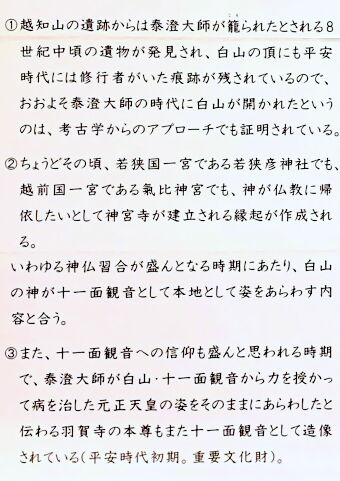 ①越知山の遺跡からは泰澄大師が籠られたとされる8
世紀中頃の遺物が発見され、白山の頂にも平安
時代には修行者がいた痕跡が残されているので、
おおよそ泰澄大師の時代に白山が開かれたという
のは、考古学からのアプローチでも証明されている。
②ちょうどその頃、若狭国一宮である若狭彦神社でも、
越前国一宮である氣比神宮でも、神が仏教に帰
依したいとして神宮寺が建立される縁起が作成され
る。
いわゆる神仏習合が盛んとなる時期にあたり、白山
の神が十一面観音として本地として姿をあらわす内
容と合う。
③また、十一面観音への信仰も盛んと思われる時期
で、泰澄大師が白山・十一面観音から力を授かっ
て病を治した元正天皇の姿をそのままにあらわしたと
伝わる羽賀寺の本尊もまた十一面観音として造像
されている(平安時代初期。重要文化財)。